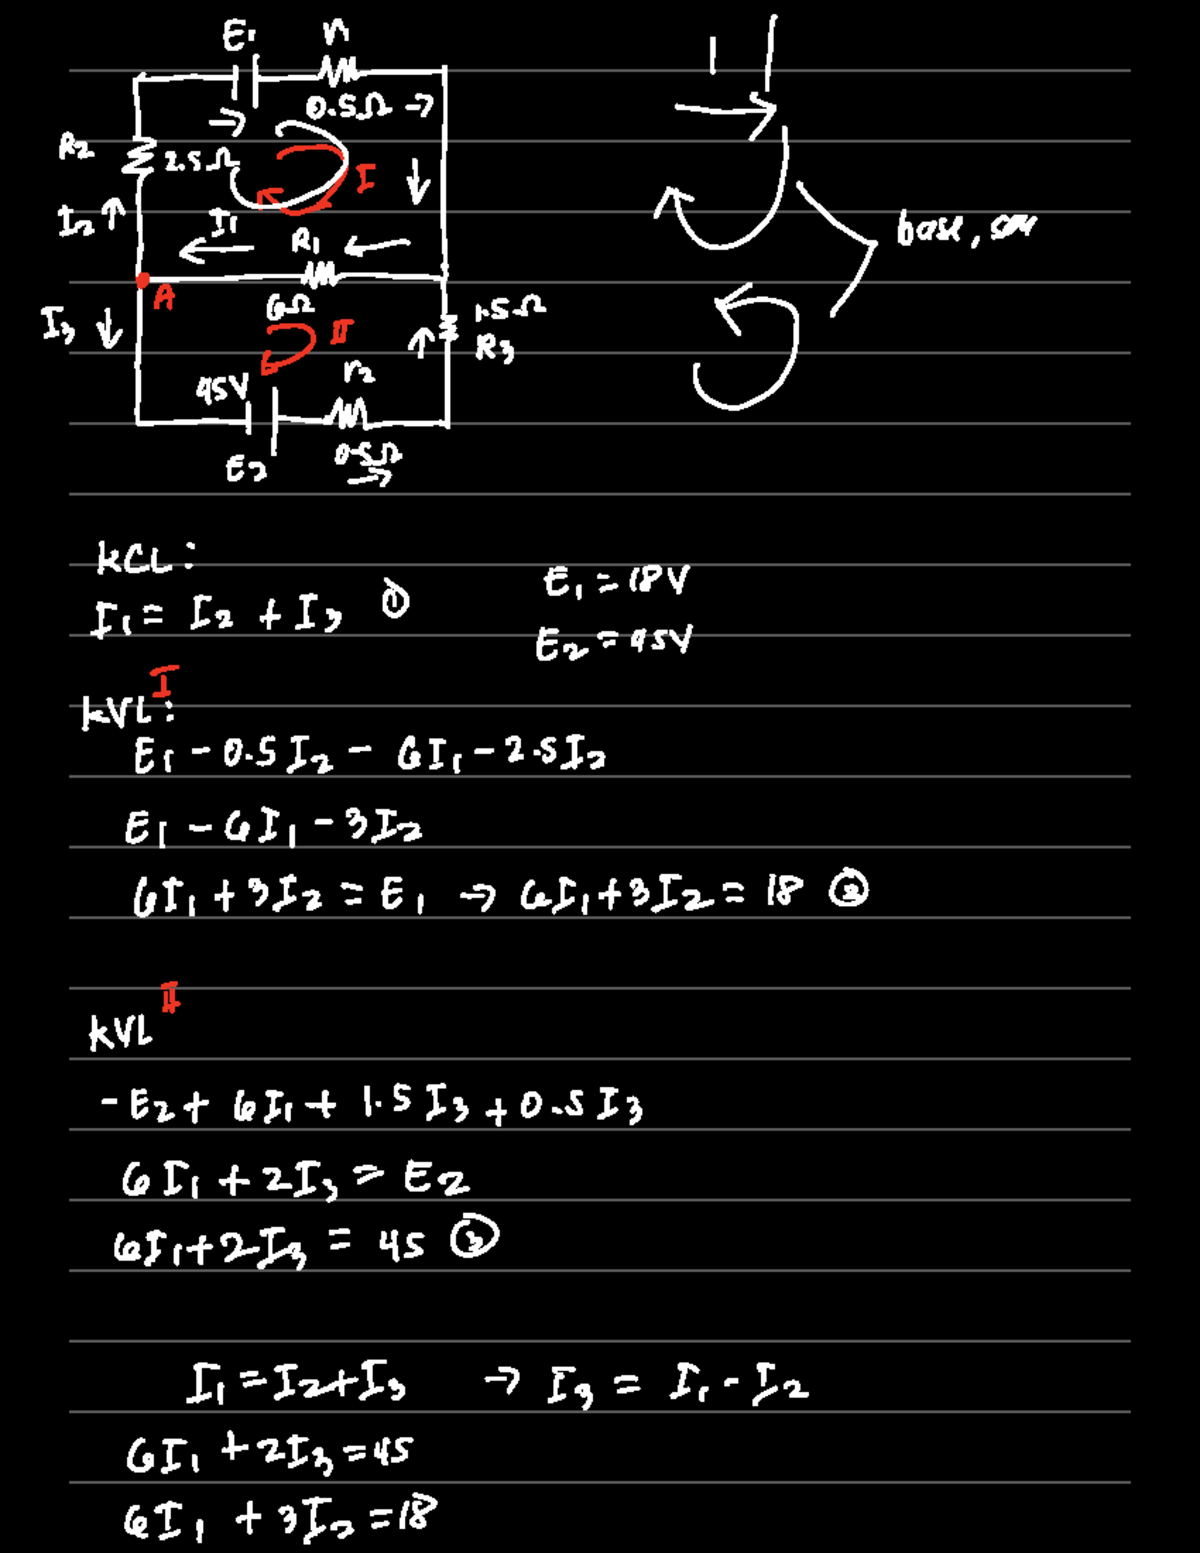 E₁ r₁
0.5Ω →
R₂ 2.5Ω I
I₂ ↑ I₁ R₁
A 6Ω 1.5Ω
I₃ ↓ II R₃
45V r₂
E₂ 0.5Ω
1
base,
KCL:
I₁ = I₂ + I₃ ①
E₁ = 18V
E₂ = 45V
KVL I :
E₁ - 0.5 I₂ - 6I₁ - 2.5I₂
E₁ - 6I₁ - 3I₂
6I₁ + 3I₂ = E₁ → 6I₁ + 3I₂ = 18 ②
KVL II
- E₂ + 6I₁ + 1.5 I₃ + 0.5 I₃
6I₁ + 2I₃ = E₂
6I₁ + 2I₃ = 45 ③
I₁ = I₂ + I₃ → I₃ = I₁ - I₂
6I₁ + 2I₃ = 45
6I₁ + 3I₂ = 18